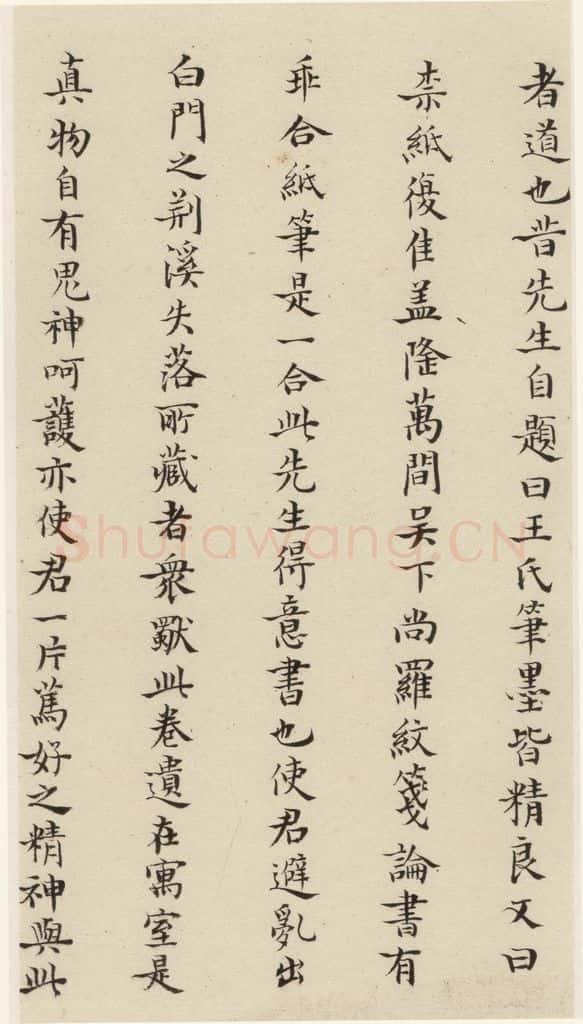 者道也昔先生自題曰王氏筆墨皆精良又曰
柰紙復佳盖隆萬間吴下尚羅紋箋論書有
乖合紙筆是一合此先生得意書也使君避亂出
白門之荆溪失落所藏者衆獸此卷遺在寓室是
真物自有鬼神呵護亦使君一片篤好之精神與此
Shufawang.CN